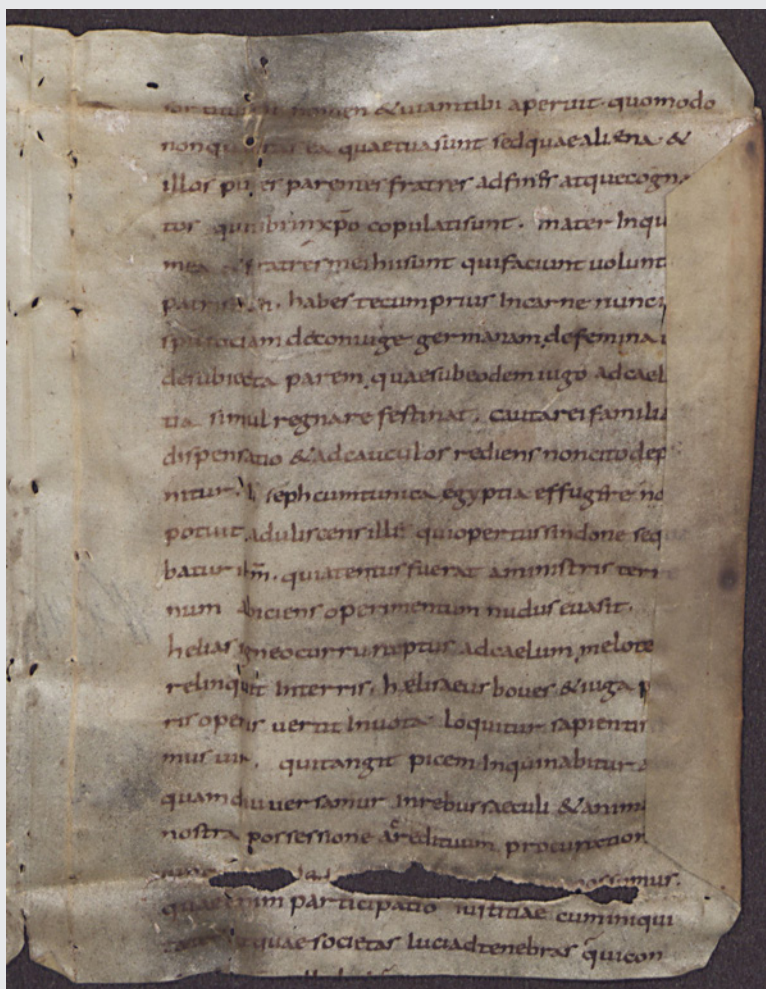 nomen & uiam tibi aperuit. quomodo
non ea quae tua sunt sed quae aliena. &
illos parentes fratres adfines atque cogna
tos qui tibi in xpo copulati sunt. mater Inqu
mea fratres mei hii sunt qui faciunt uolunt
patris habes tecum prius Incarne nunc
spu sociam de coniuge germanam. de femina
desubiecta parem. quae sub eodem iugo ad cael
tia simul regnare festinat. familia
dispensatio & ad cauculos rediens non cito dep
nitur. seph cum tunica egyptia effugere no
potuit adulescens ille qui opertus sindone seq
batur ihm. quia tentus fuerat a ministris terre
num abiciens operimentum nudus euasit.
helias igneo curru raptus ad caelum. melote
relinquit Interris. helisaeus boues & iuga p
ris operis uertit Inuota. loquitur sapientis
mus uir. qui tangit picem Inquinabitur a
quamdiu uersamur Inrebus saeculi & anim
nostra possessione ac redituum procuration
possimus.
quae enim participatio iustitiae cum iniqui
quae societas luci ad tenebras qui con